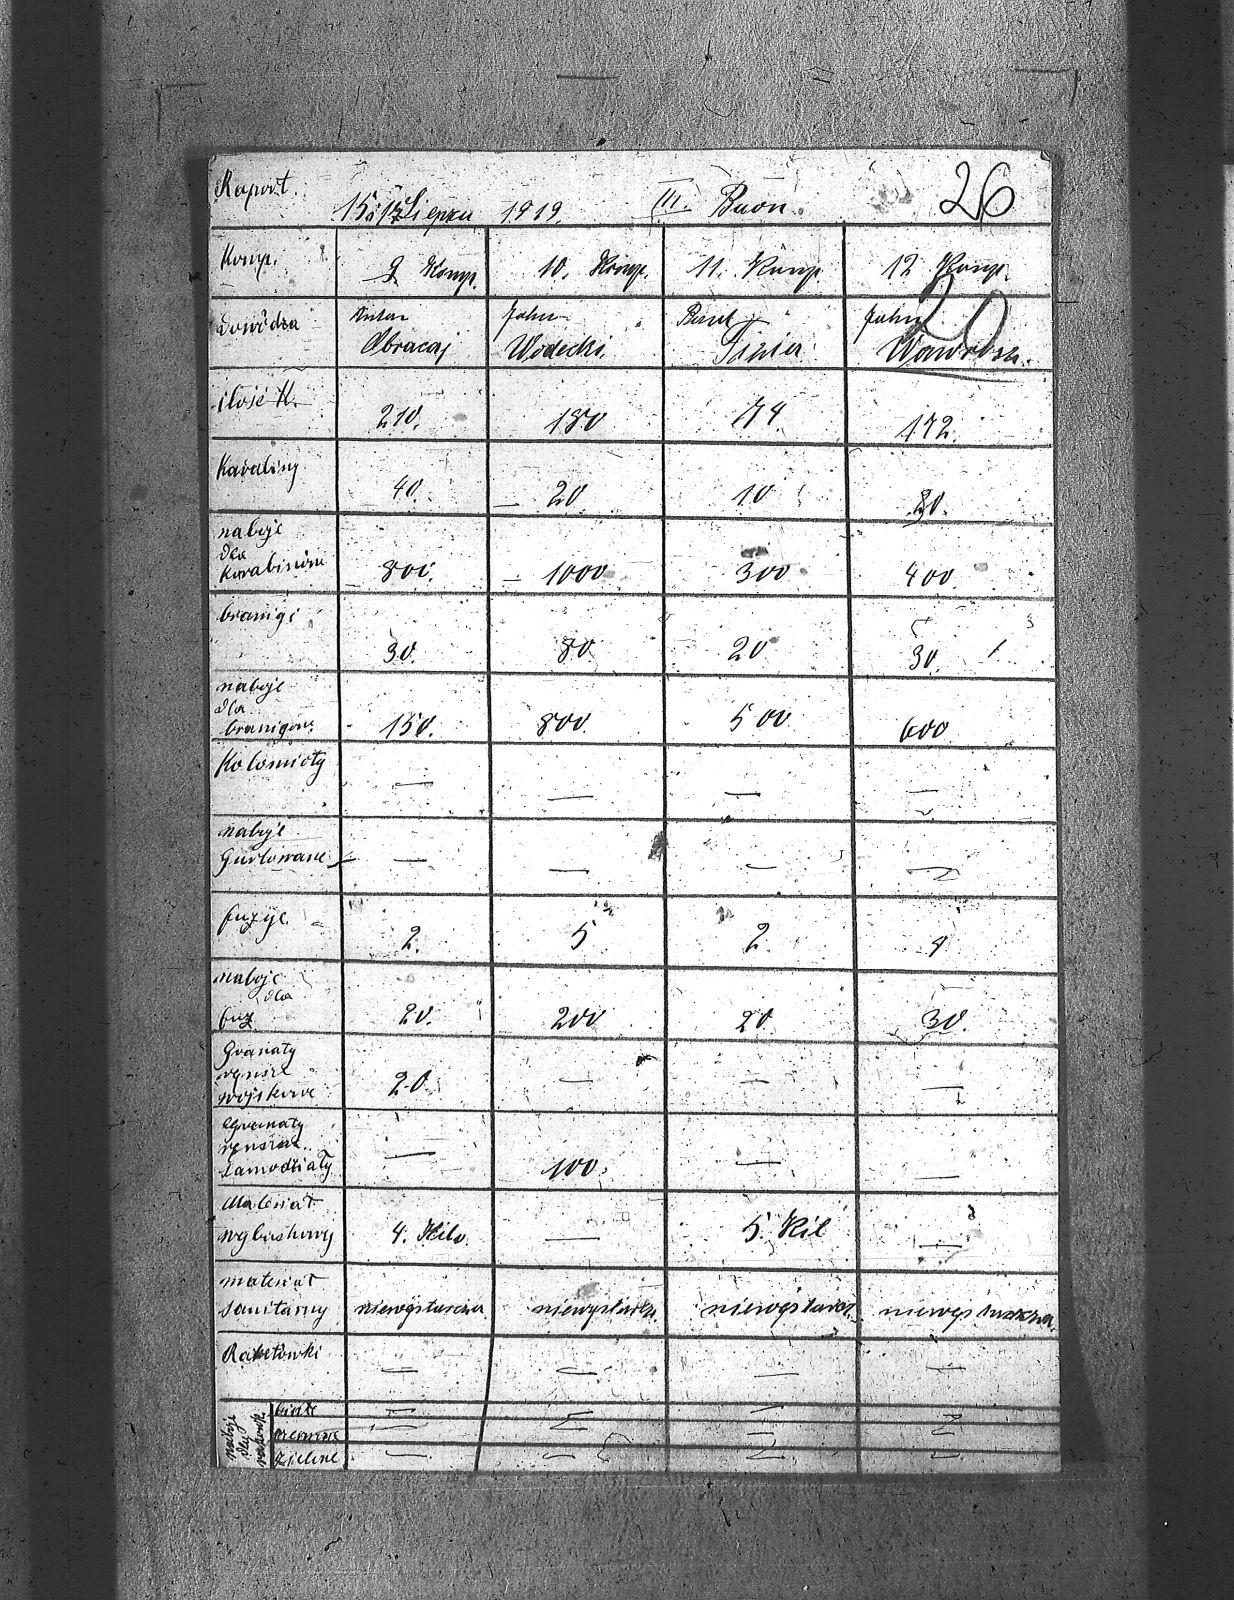 Raport. 15. Lipca 1919. III. Baon. 26
Komp. 9 Komp. 10. Komp. 11. Komp. 12 Komp.
20
dowódca Anton Obracaj John Wodecki Paul John
ilość K. 210. 180 174. 172.
Karabiny 40. 20 10 30.
naboje
dla
karabinów 800. 1000 300 400
braunigi 30. 80 20 30.
naboje
dla
braunigow. 150. 800. 500 600
Kolomioty — — — —
naboje
Gurtowane — — — —
fuzye 2. 5 2. 4
naboje
dla
fuz 20. 200 20 30.
Granaty
ręczne
wojskowe 20. — — —
Granaty
ręczne
samodziały — 100. — —
Materiał
wybuchowy 4. Kilo. — 5. Kil —
materiał
sanitarny niewystarcza niewystarcz. niewystarcz niewystarcza.
Raketówki — — — —
naboje
dla
białe — — — —
czerwone — — — —
zielone — — — —